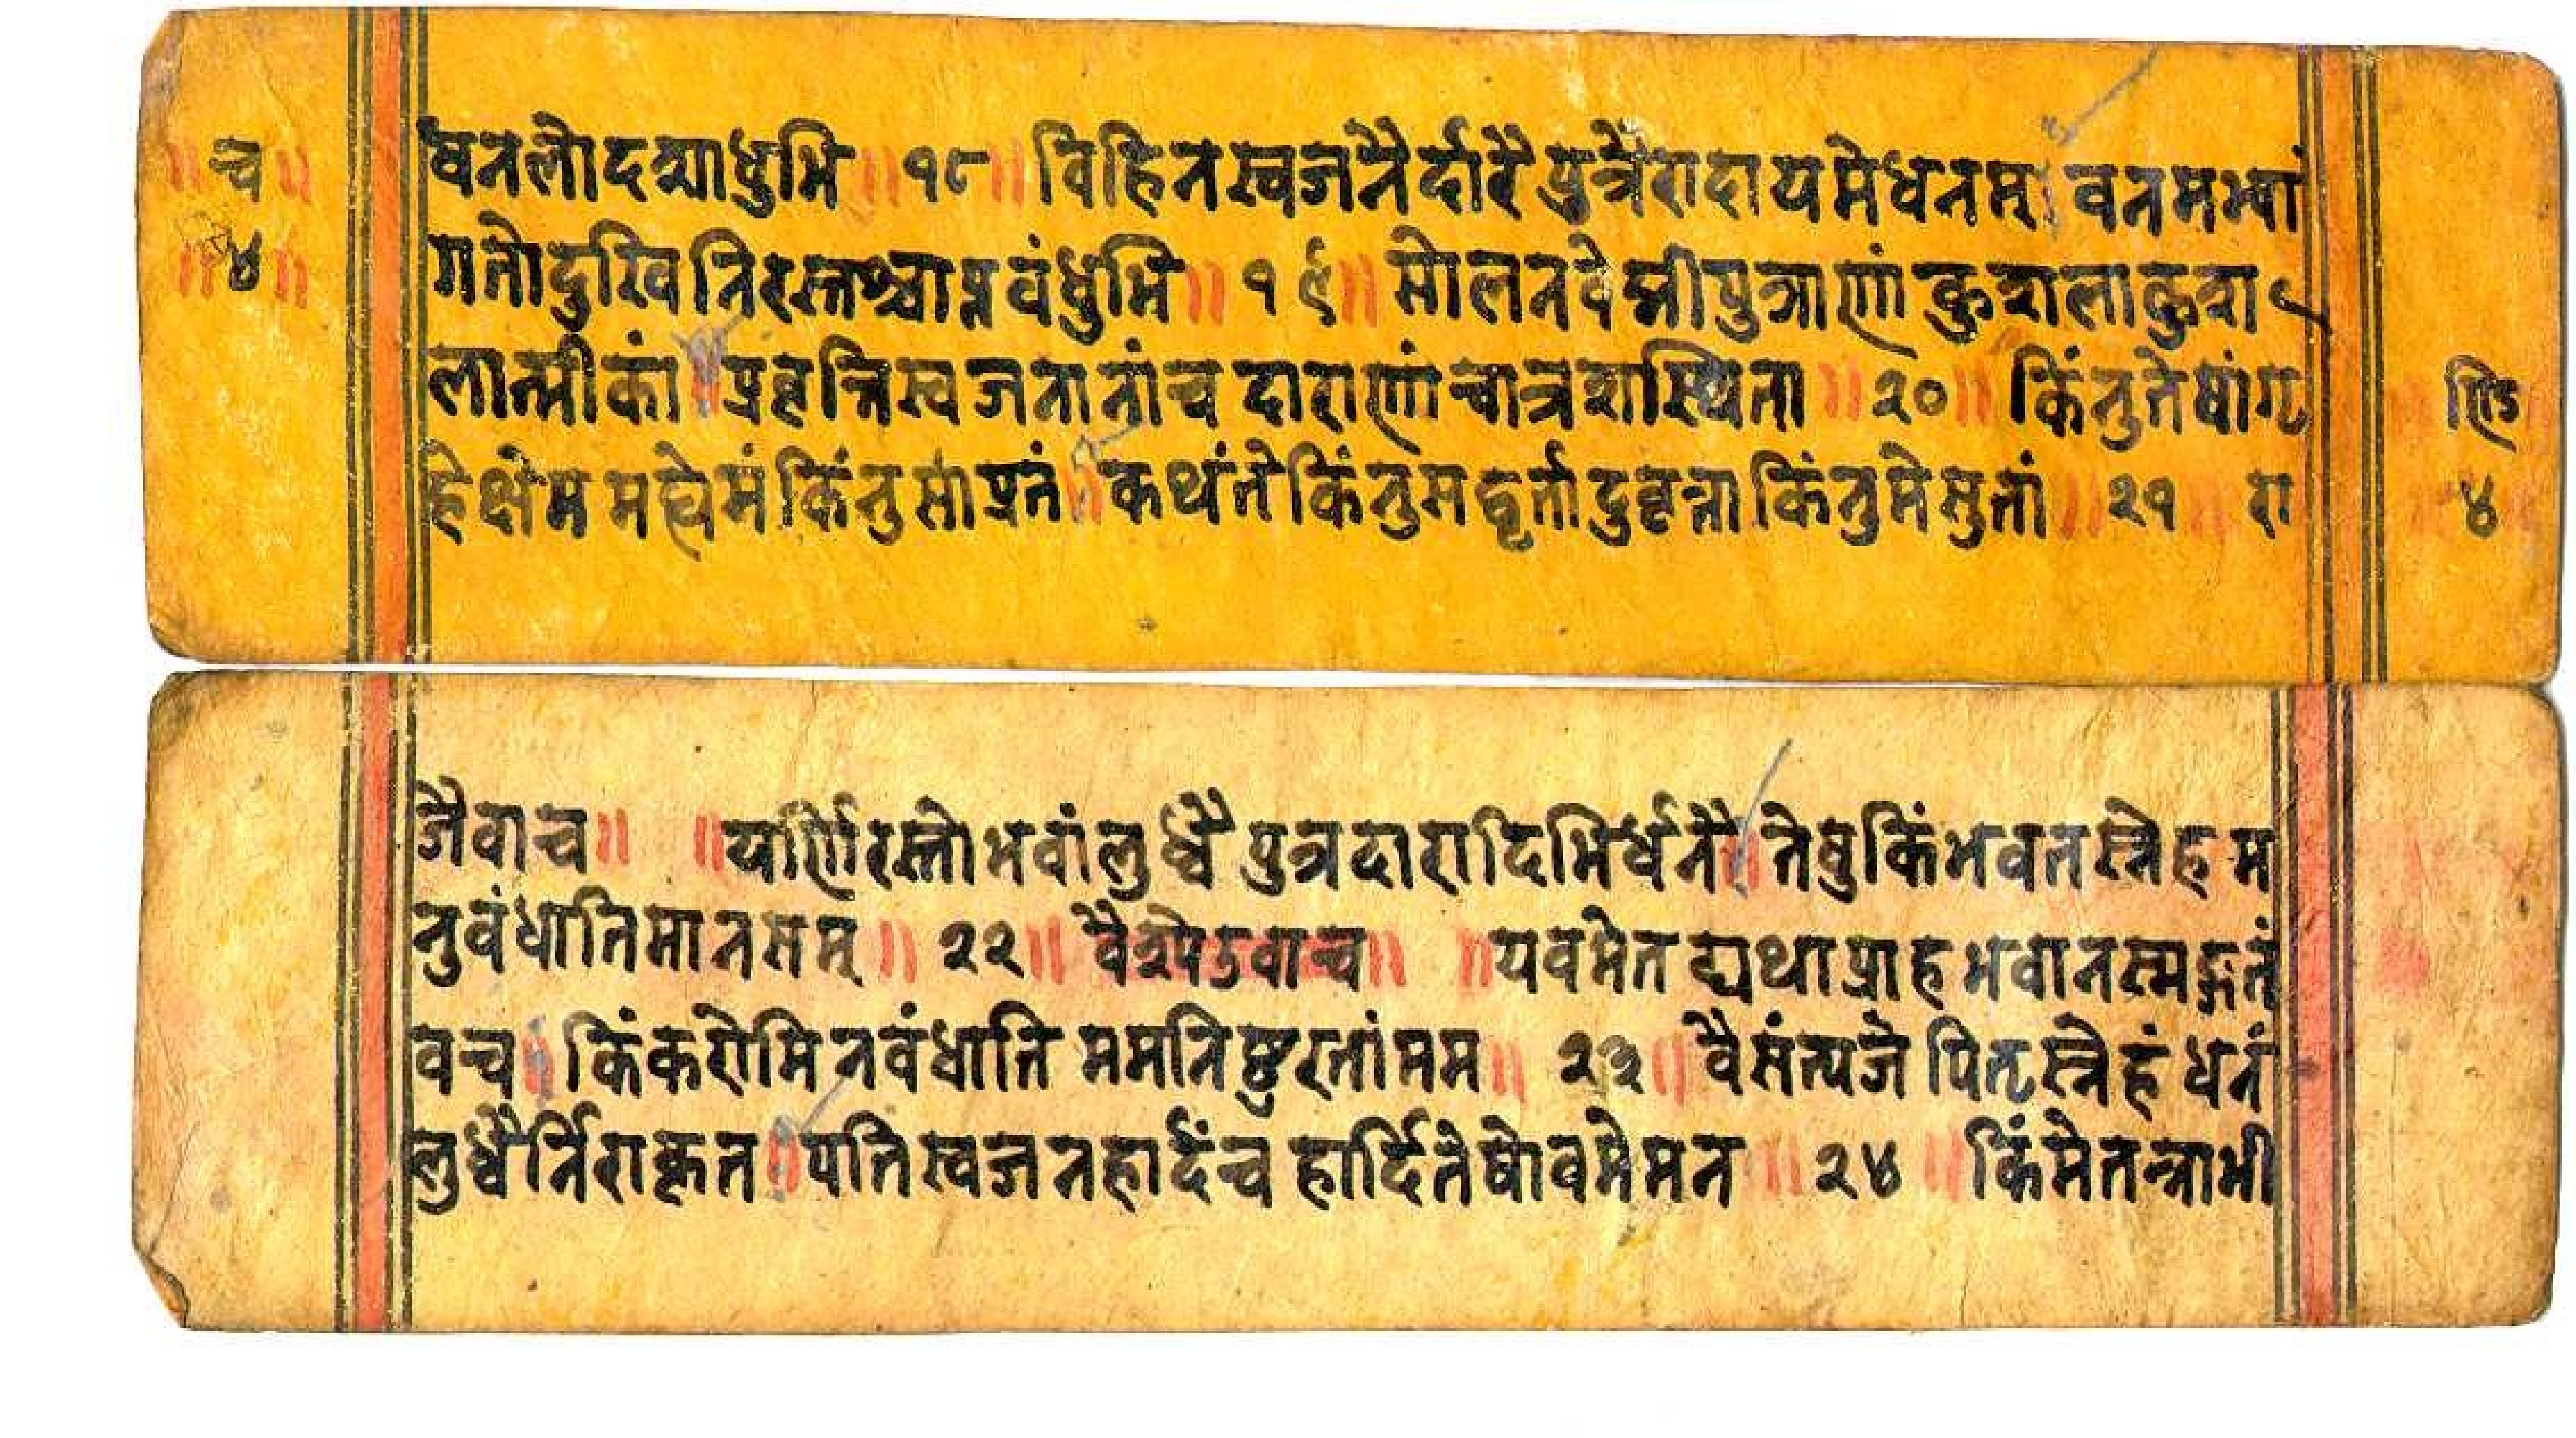 ॥ च ॥
॥ ४ ॥
षनलोदद्माधुभि ॥ १८ ॥ विहिनस्वजनैर्दारै पुत्रैरादायमेधनम् । वनमभ्या
गतोदुखि निरस्तश्चाप्नवंधुभि ॥ १९ ॥ सोलनवेद्मीपुत्राणां कुशलाकुश
लात्मीकां । प्रवृत्तिस्वजनानांच दाराणांचात्रशस्थिता ॥ २० ॥ किंनुतेषांगृ
हेक्षेम मह्येमंकिंनुसांप्रतं । कथंतेकिंनुसद्वृर्ता दुवृत्रा किंनुमेसुतां ॥ २१ ॥ रा
ण्डि
४
जैवाच ॥ ॥ यर्णिरस्तोभवांलुर्ध्वै पुत्रदारादिभिर्धनै । तेषुकिंभवतस्नेहम
नुवंधातिमानसम् ॥ २२ ॥ वैश्येउवाच ॥ ॥ यवमेतद्यथाप्राहभवानत्मङ्गतं
वच । किंकरोमिनवंधाति ममनिष्ठुरतांमम ॥ २३ ॥ वैसंत्यजै पितृस्नेहं धनं
लुर्ध्वैर्निराकृत । पतिस्वजनहार्दंच हार्दितेषोवमेमन ॥ २४ ॥ किंमेतन्नाभी